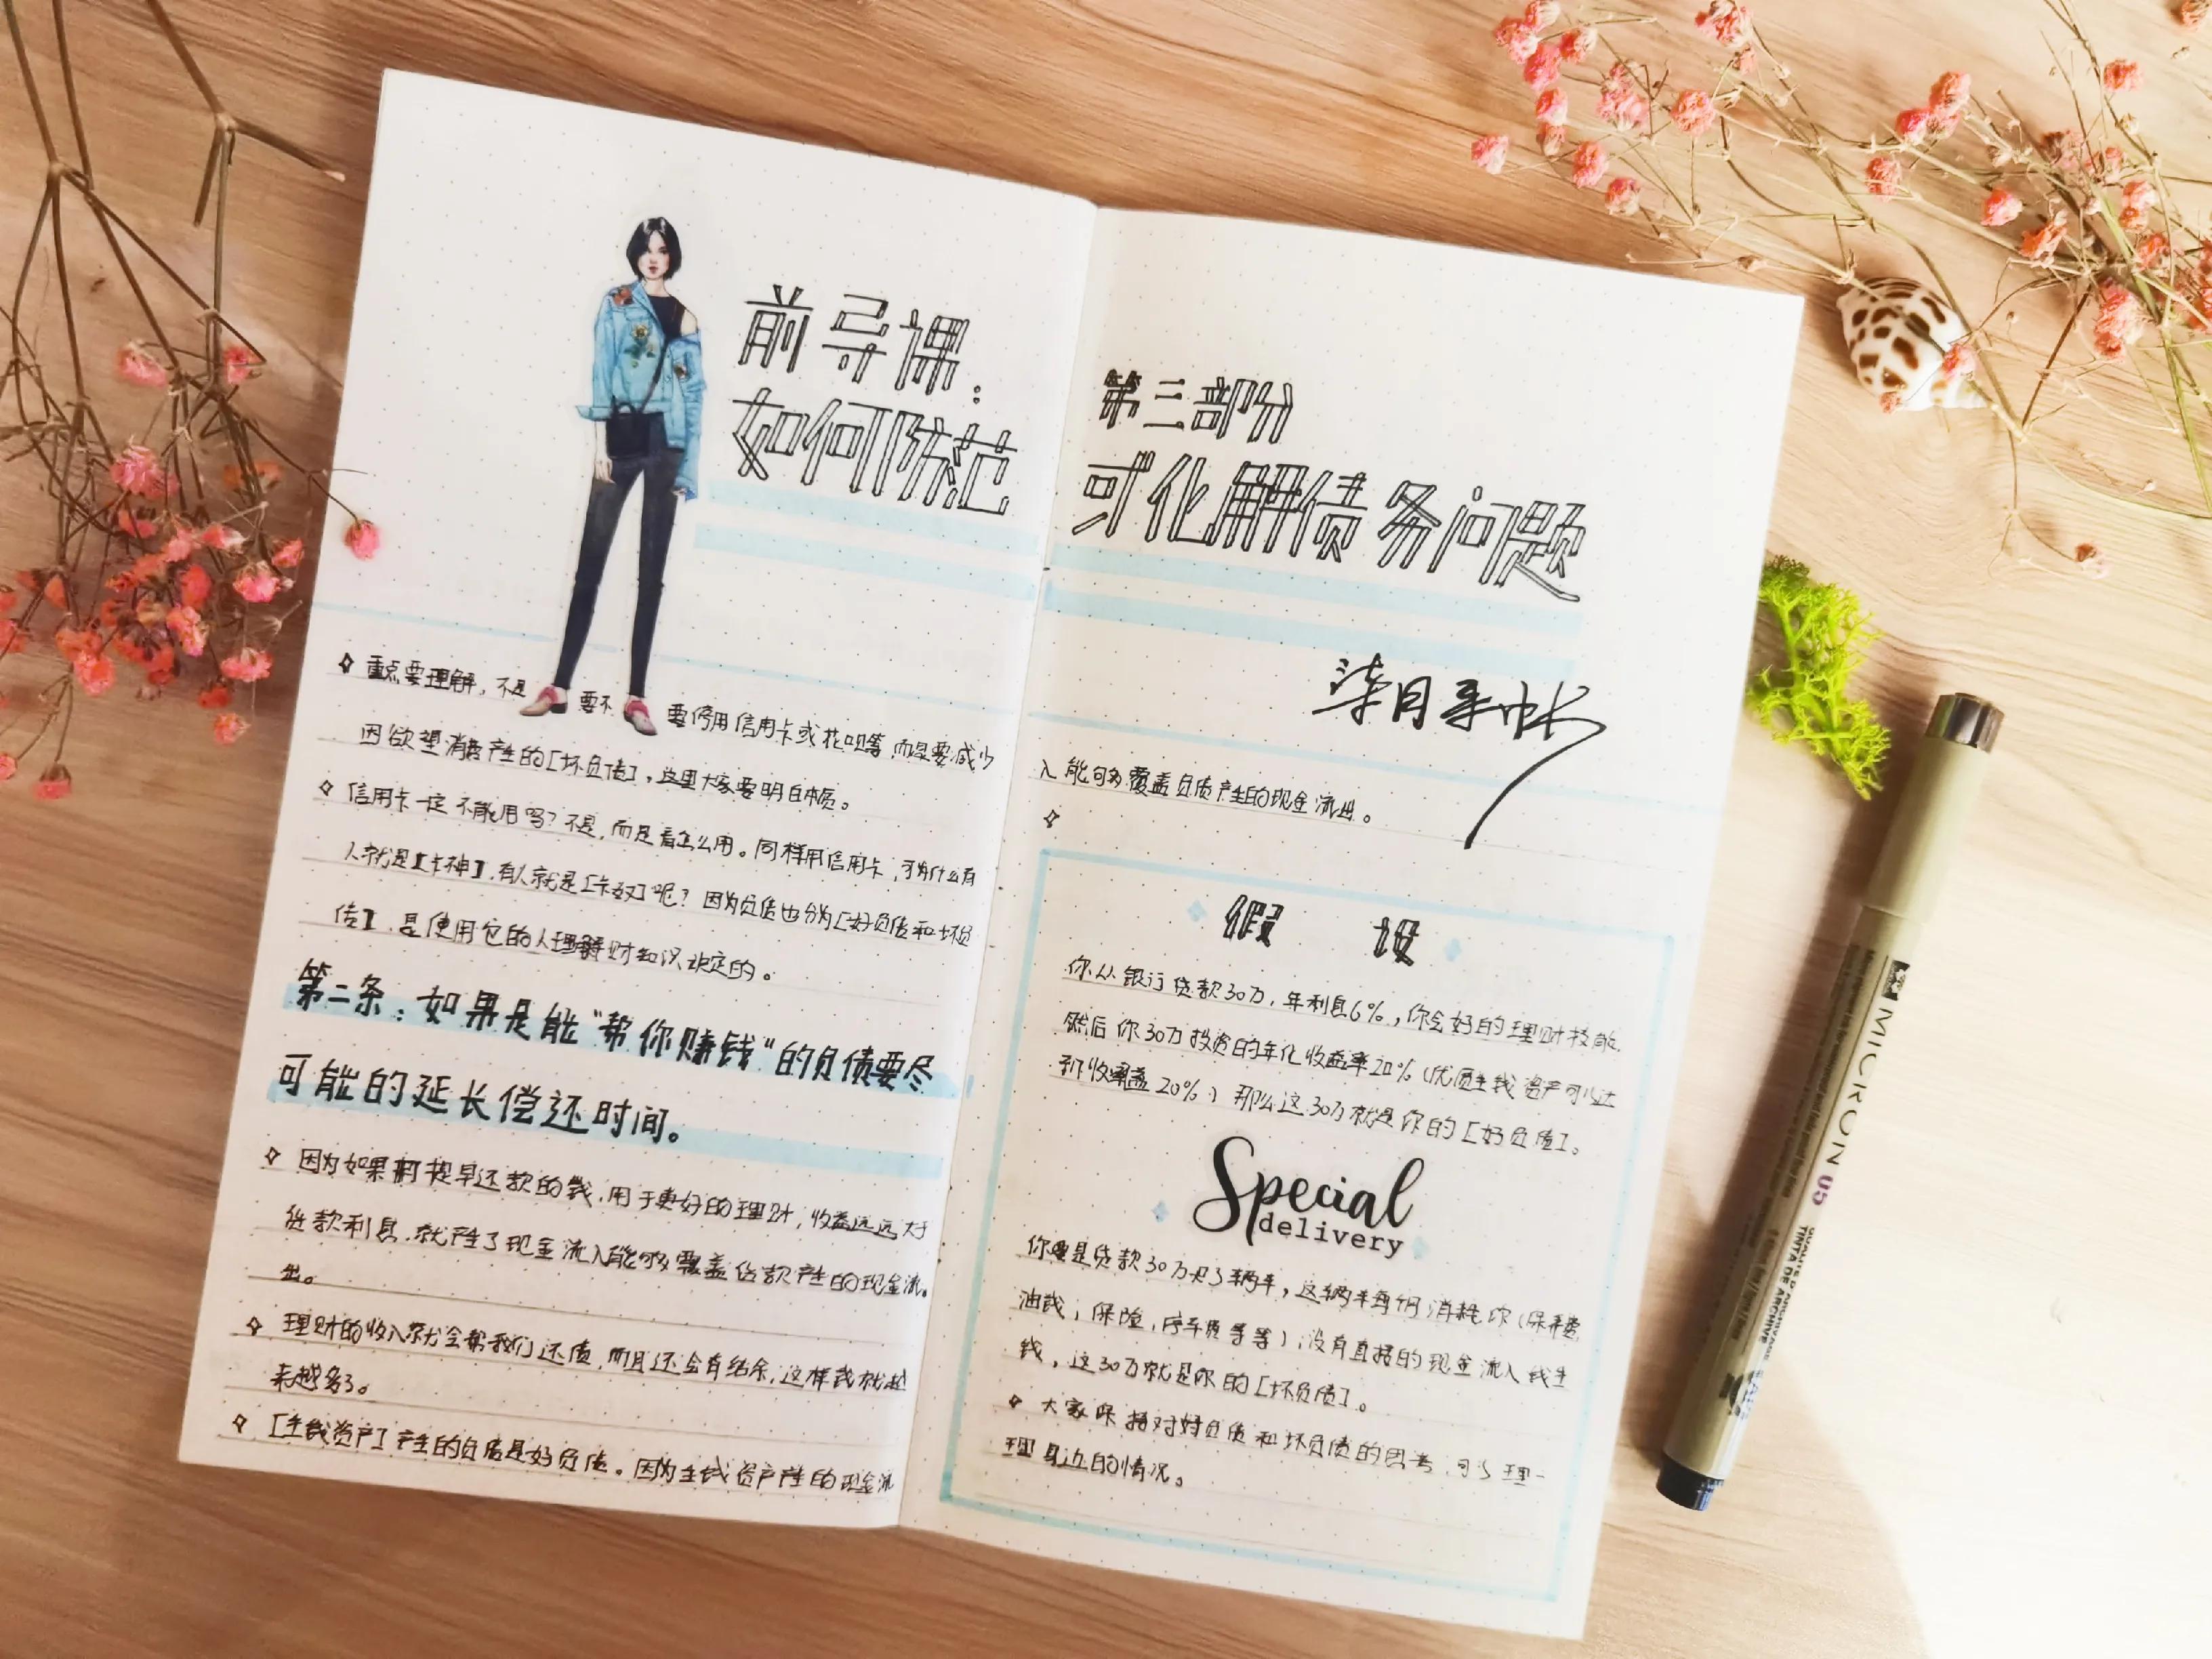 前导课：
如何防范
重点要理解，不是要不要停用信用卡或花呗等，而是要减少
因欲望消费产生的[坏负债]，这里大家要明白本质。
信用卡一定不能用吗？不是，而是看怎么用。同样用信用卡，可为什么有
人就是[卡神]，有人就是[卡奴]呢？因为负债也分为[好负债和坏负
债]，是使用它的人理解财知识决定的。
第二条：如果是能“帮你赚钱“的负债要尽
可能的延长偿还时间。
因为如果用提早还款的钱，用于更好的理财，收益远远大于
贷款利息，就产生了现金流入能够覆盖贷款产生的现金流。
出。
理财的收入就会帮我们还债，而且还会有结余，这样钱就越
来越多了。
[生钱资产]产生的负债是好负债。因为生钱资产产生的现金流
第三部分
或化解债务问题
柒月手帐
入能够覆盖负债产生的现金流出。
假 设
你从银行贷款30万，年利息6%，你会好的理财技能，
然后你30万投资的年化收益率20%（优质生钱资产可以达
到收益20%）那么这30万就是你的[好负债]。
Special
delivery
你要是贷款30万买了辆车，这辆车每月消耗你（保养费
油钱，保险，停车费等等），没有直接的现金流入钱生
钱，这30万就是你的[坏负债]。
大家保持对好负债和坏负债的思考，可以理一
理身边的情况。
MICRON 05
TINTA DE ARCHIVE